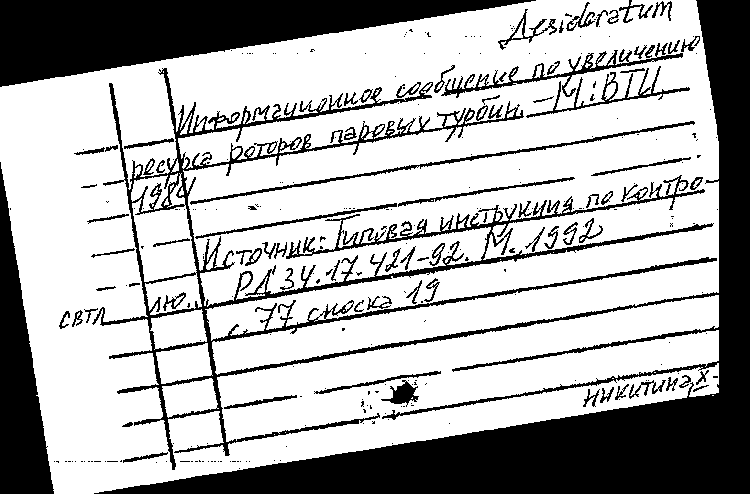 Desideratum
Информационное сообщение по увеличению
ресурса роторов паровых турбин. – М.: ВТИ,
1984
Источник: Типовая инструкция по контро-
лю... РД 34.17.421-92. М., 1992
СВТЛ
с. 77, сноска 19
Никитина, X